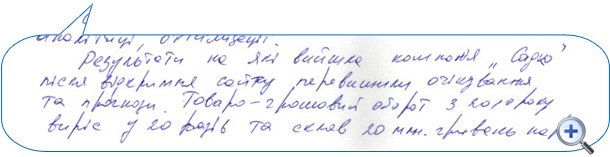 аналітиці, оптимізації.
Результати на які вийшла компанія „Садко"
після відкриття сайту перевищили очікування
та прогнози. Товаро-грошовий оборот з 2010 року
виріс у 20 разів та склав 20 млн. гривень на